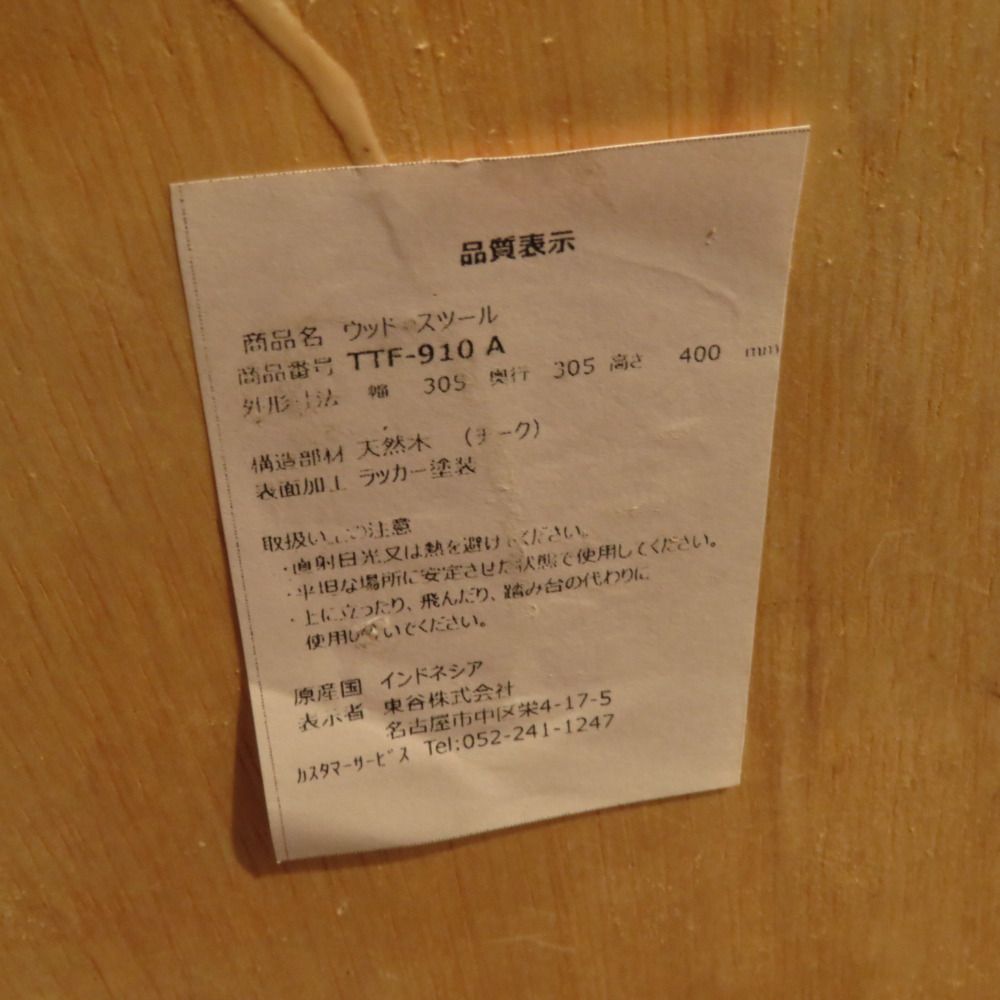 品質表示
商品名 ウッド スツール
商品番号 TTF-910 A
外形寸法 幅 305 奥行 305 高さ 400 mm
構造部材 天然木 (チーク)
表面加工 ラッカー塗装
取扱い上の注意
・直射日光又は熱を避けてください。
・平坦な場所に安定させた状態で使用してください。
・上に立ったり、飛んだり、踏み台の代わりに
使用しないでください。
原産国 インドネシア
表示者 東谷株式会社
名古屋市中区栄4-17-5
カスタマーサービス Tel:052-241-1247